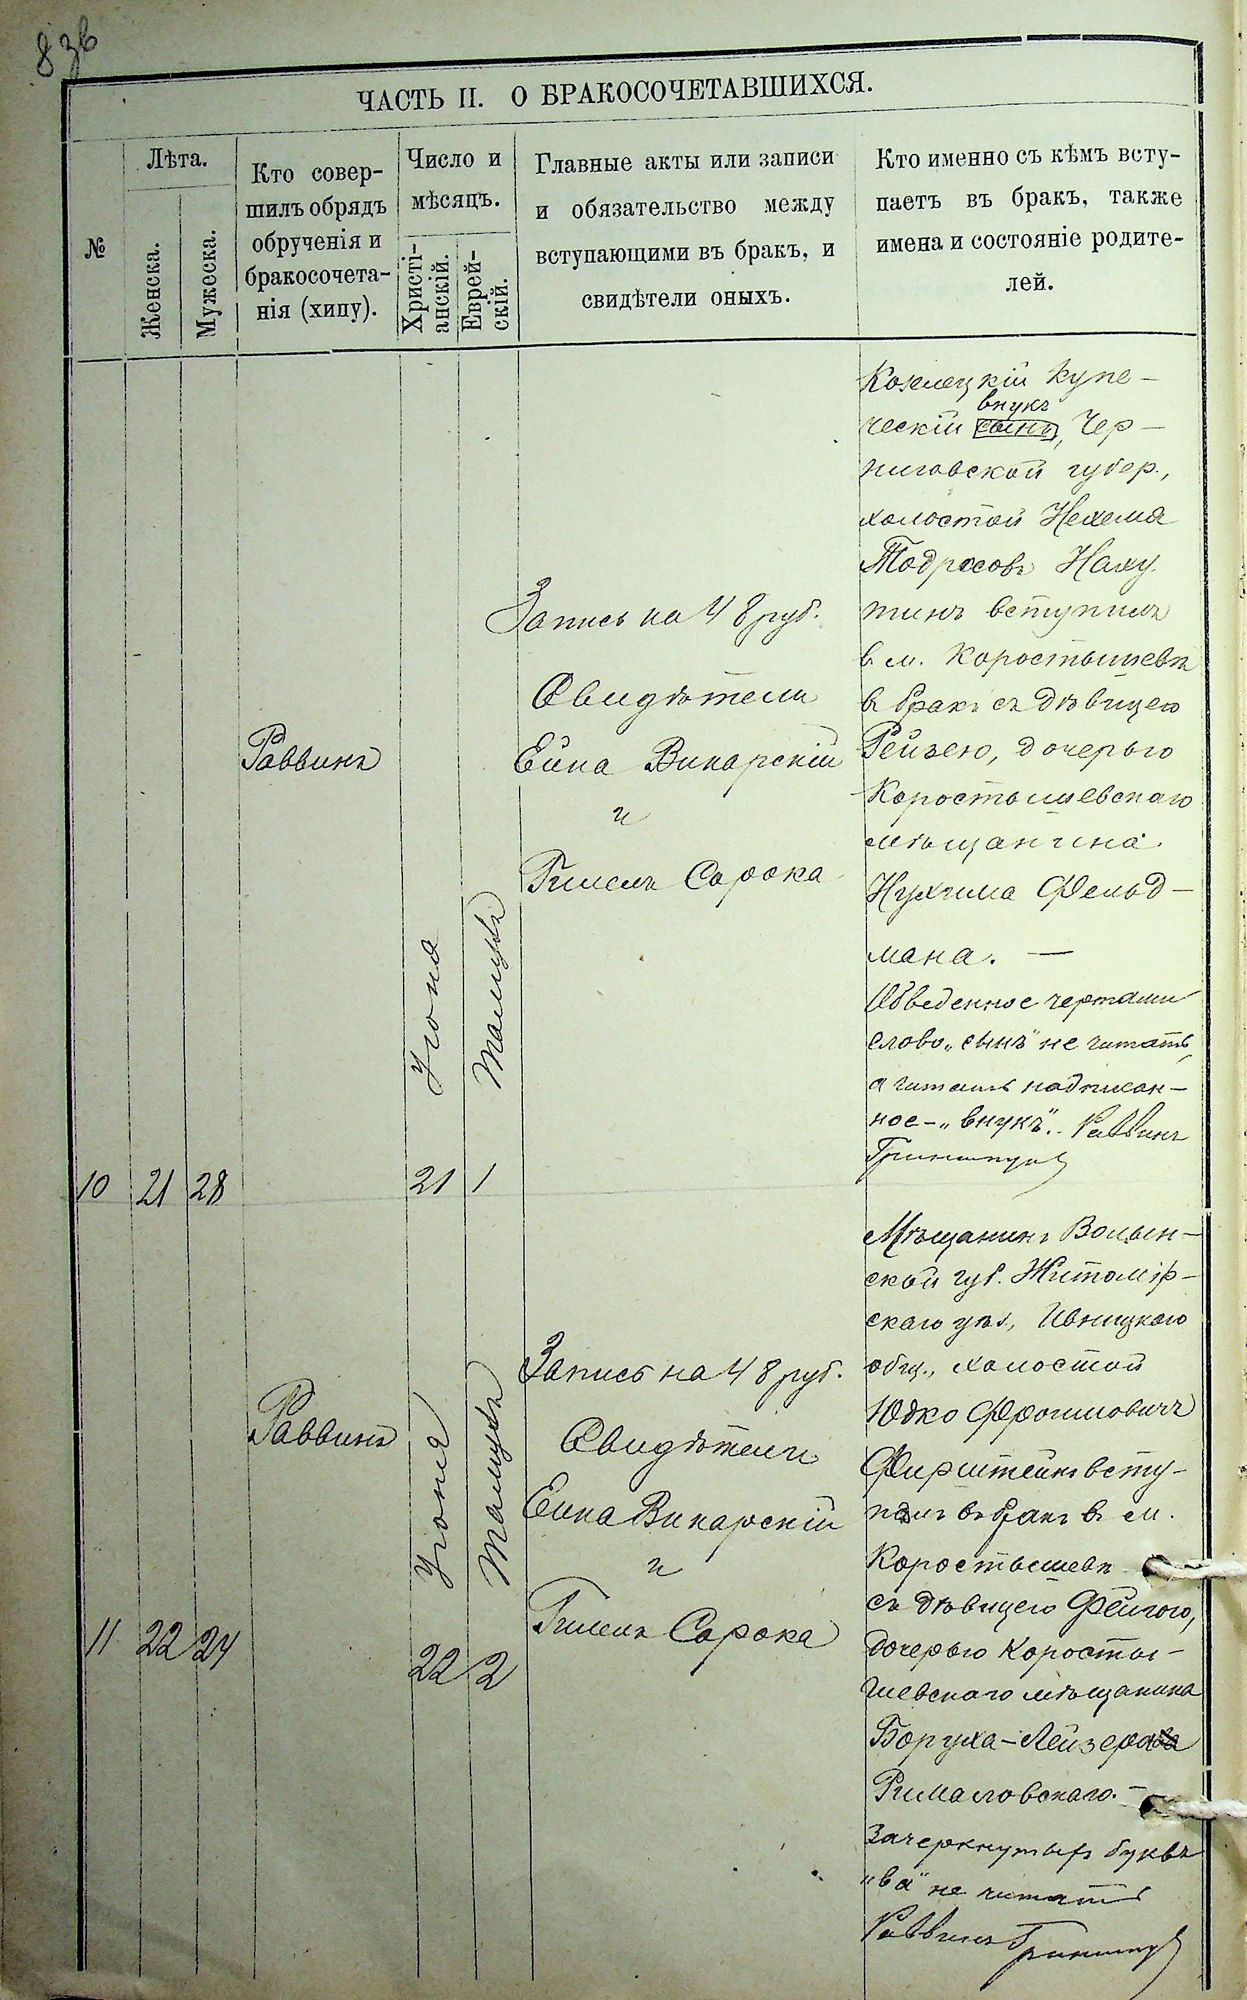 ЧАСТЬ II. О БРАКОСОЧЕТАВШИХСЯ.
№
Лѣта.
Женска.
Мужеска.
Кто совер-
шилъ обрядъ
обрученія и
бракосочета-
нія (хипу).
Число и
мѣсяцъ.
Христі-
анскій.
Еврей-
скій.
Главные акты или записи
и обязательство между
вступающими въ бракъ, и
свидѣтели оныхъ.
Кто именно съ кѣмъ всту-
паетъ въ бракъ, также
имена и состояніе родите-
лей.
10
21
28
Раввинъ
Іюня
21
Тамуза
1
Запись на 48 руб.
Свидѣтели
Ейна Винарскій
и
Гимель Сорока
Козелецкій купе-
внукъ
ческій сынъ, Чер-
ниговской губер.,
холостой Нехема
Тодросовъ Наху
тинъ вступилъ
в м. Коростышевѣ
въ бракъ съ дѣвицею
Рейзею, дочерью
Коростышевскаго
мѣщанина
Нухима Фельд-
мана. —
Обведенное чертами
слово „сынъ" не читать,
а читать надписан-
ное - „внукъ". Раввинъ
11
22
24
Раввинъ
Іюня
22
Тамуза
2
Запись на 48 руб.
Свидѣтели
Еина Винарскій
и
Гимель Сорока
Мѣщанинъ Волын-
ской губ. Житомір-
скаго уѣз, Ивницкаго
общ., холостой
Юдко Фроимовичъ
Фирштейнъ всту-
палъ въ бракъ в м.
Коростышевѣ
съ дѣвицею Фейгою,
дочерью Коросты-
шевскаго мѣщанина
Боруха-Лейзерова
Рималовскаго. -
Зачеркнутыхъ буквъ
"ва" не читать
Раввинъ